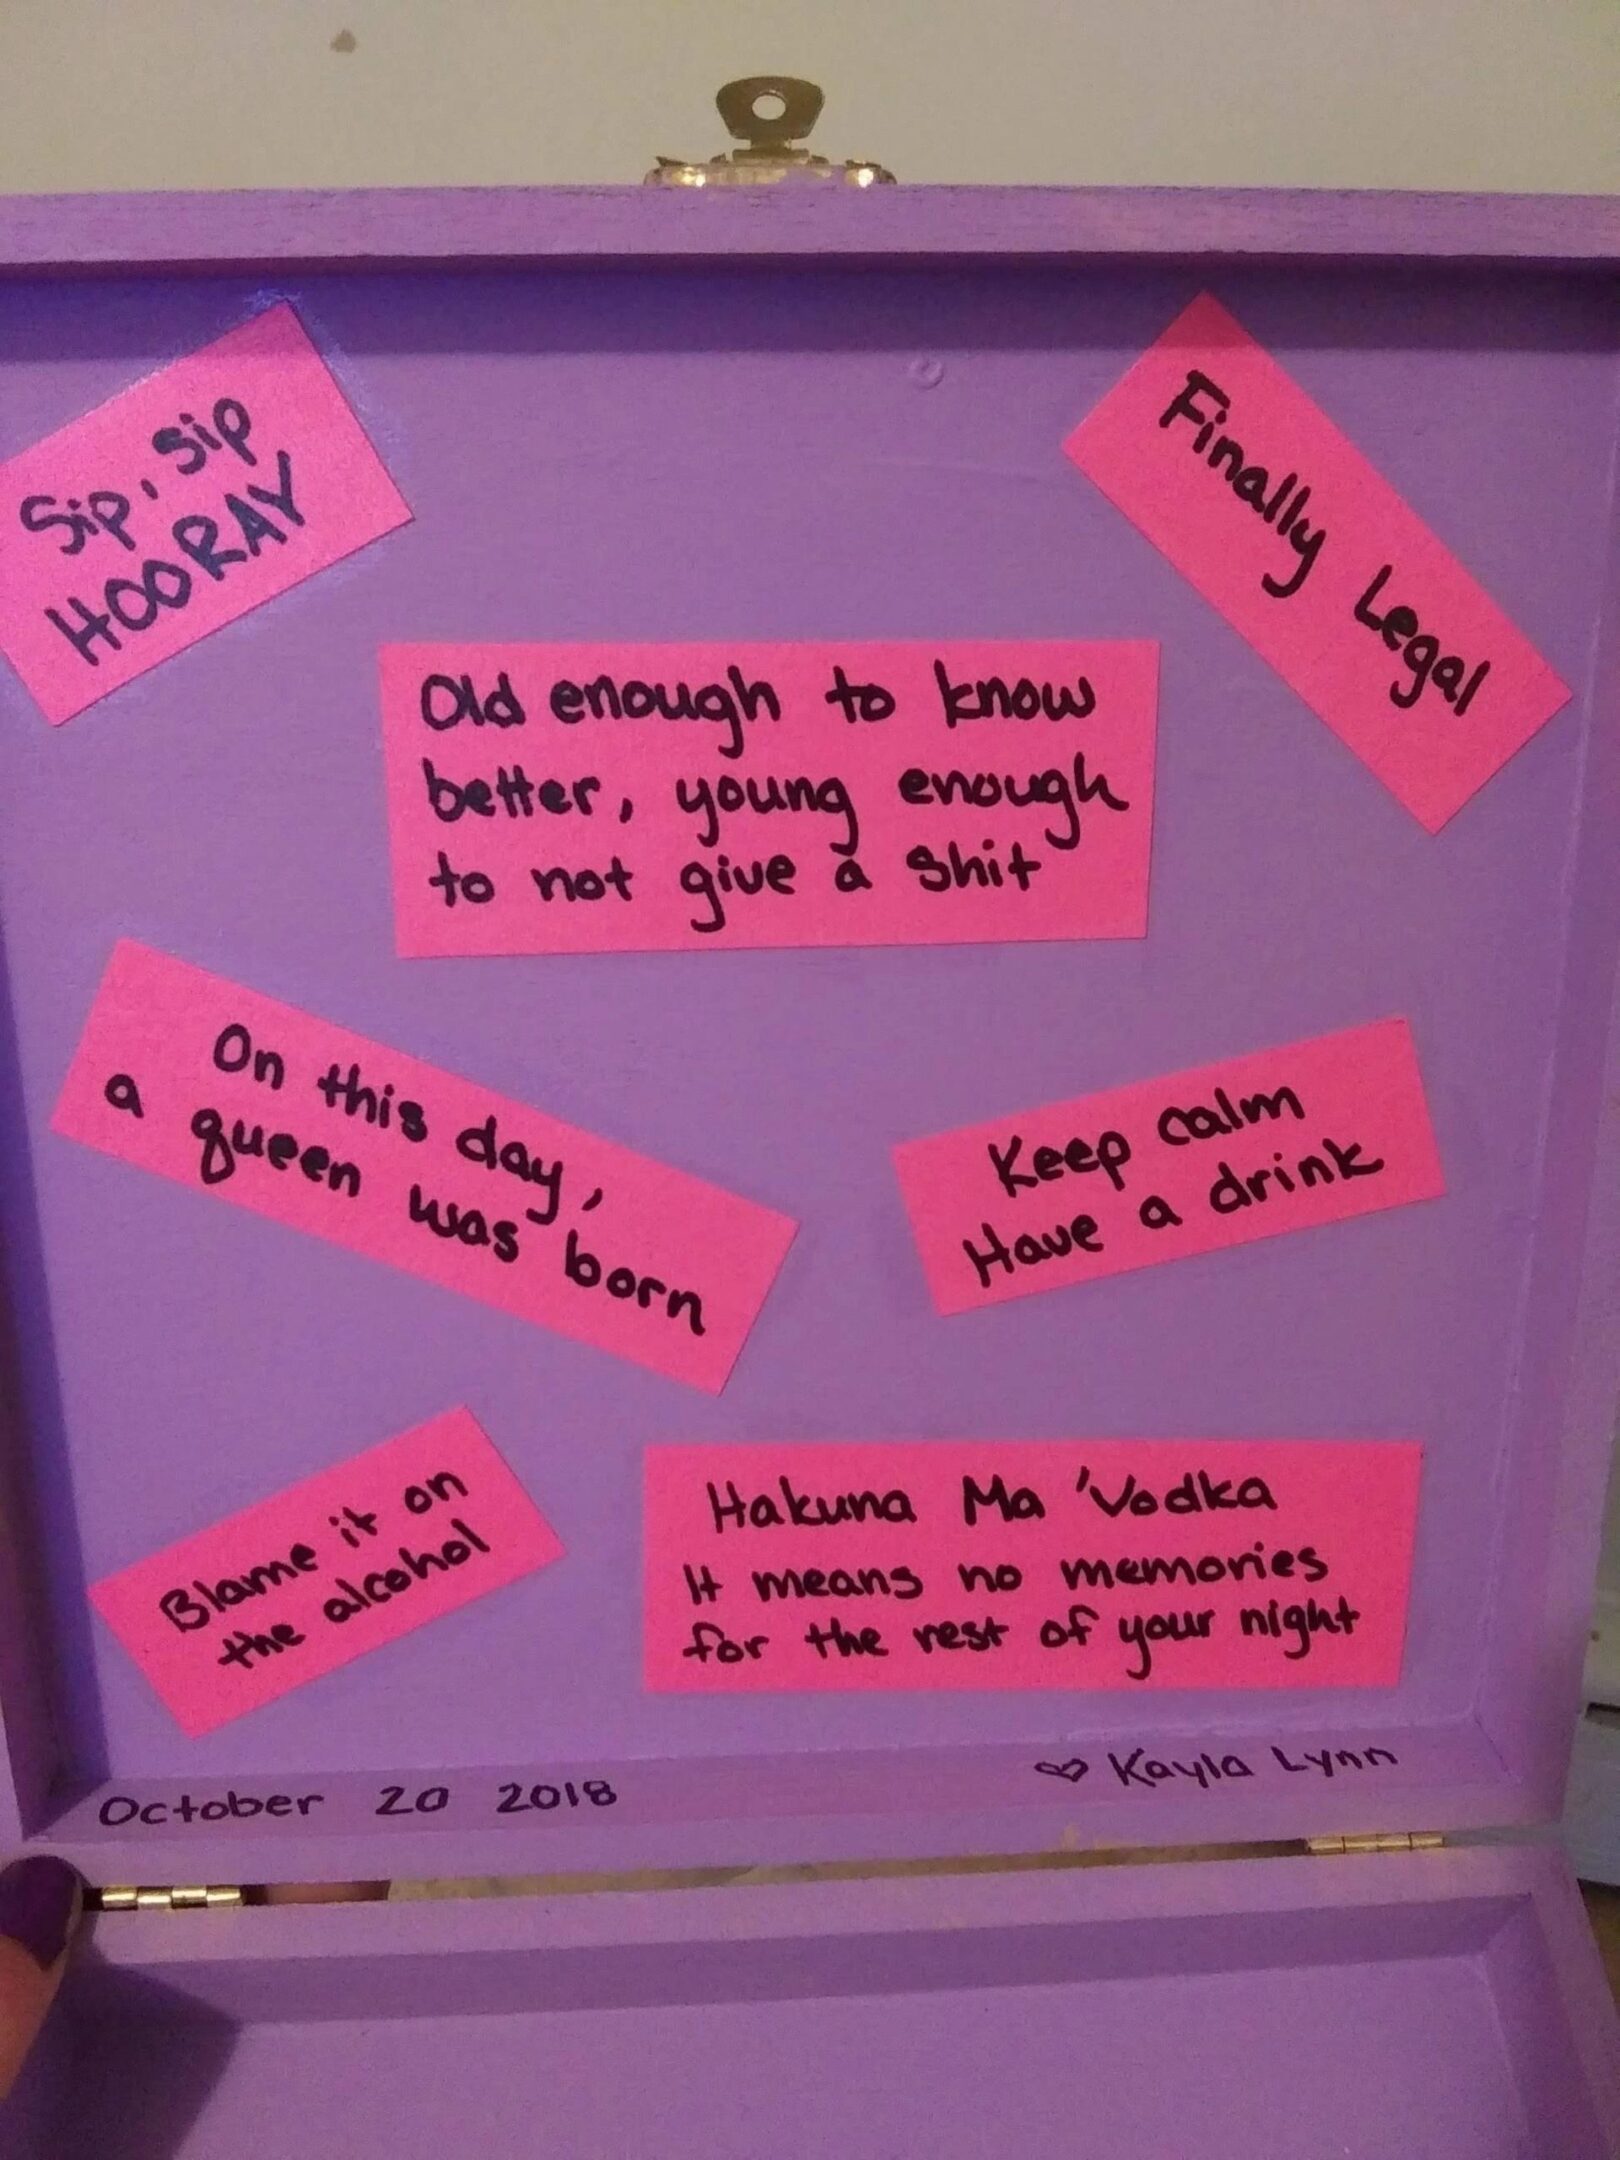 Sip, Sip
HOORAY
Finally Legal
Old enough to know
better, young enough
to not give a shit
On this day,
a queen was born
Keep calm
Have a drink
Blame it on
the alcohol
Hakuna Ma 'Vodka
It means no memories
for the rest of your night
October 20 2018
♡ Kayla Lynn